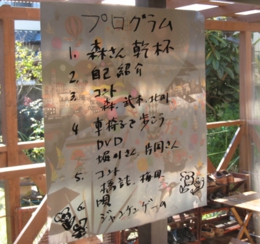 プログラム
1. 森さん 乾杯
2. 自己紹介
3 コント
森、武本、北川
4 車椅子で歩こう
DVD
堀川さん、片岡さん
5. コント
橋詰、梅田、
唄
ジャンケンゲーム